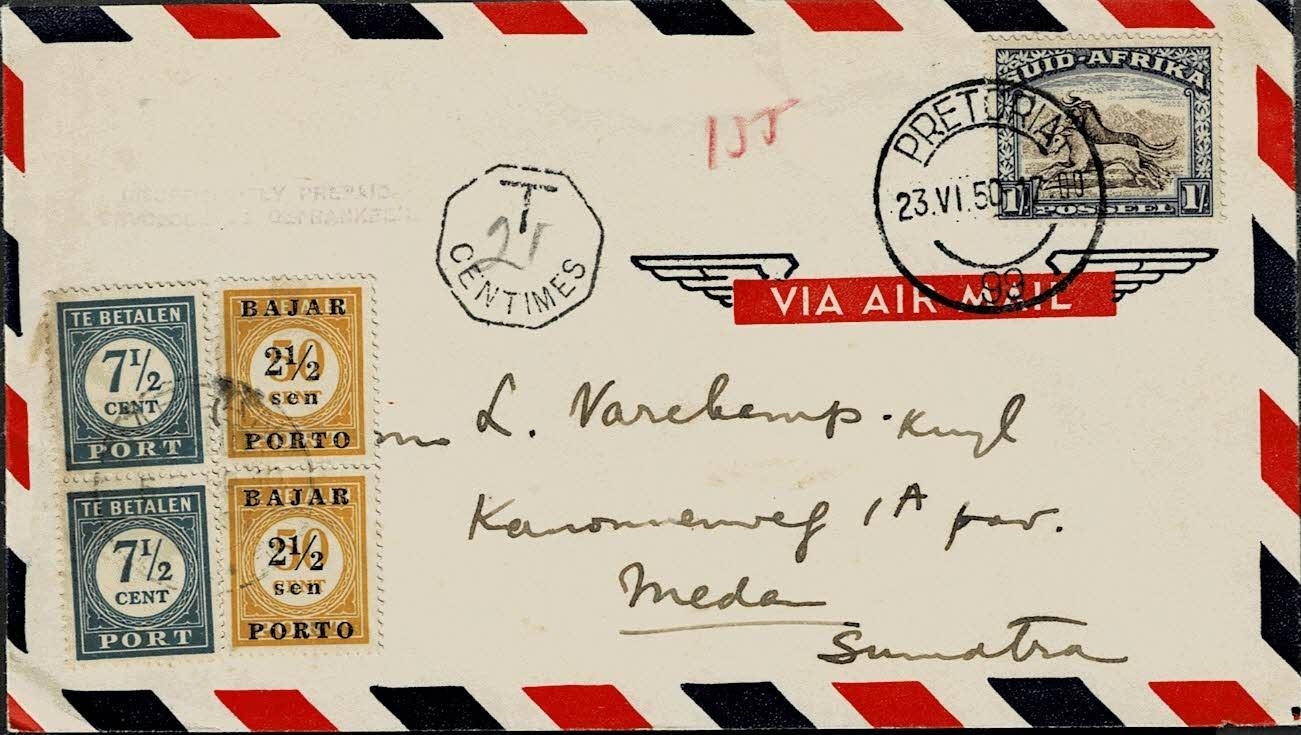 SUID-AFRIKA
POSSEËL
1/- 1/-
PRETORIA
23.VI.50 17 00
99
155
PREPAID-
T
25
CENTIMES
VIA AIR MAIL
TE BETALEN
7 1/2
CENT
PORT
BAJAR
50
2 1/2
CENT
sen
PORTO
TE BETALEN
7 1/2
CENT
PORT
BAJAR
50
2 1/2
CENT
sen
PORTO
L. Varekamp-Kuyl
Kanonnenweg 1A pav.
Medan
Sumatra